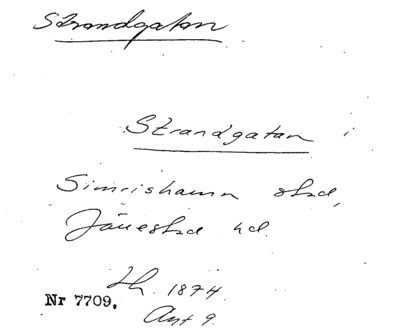 Strandgatan
Strandgatan i
Simrishamn stad,
Järrestad hd.
Lh. 1874
Nr 7709.
Ant 9.